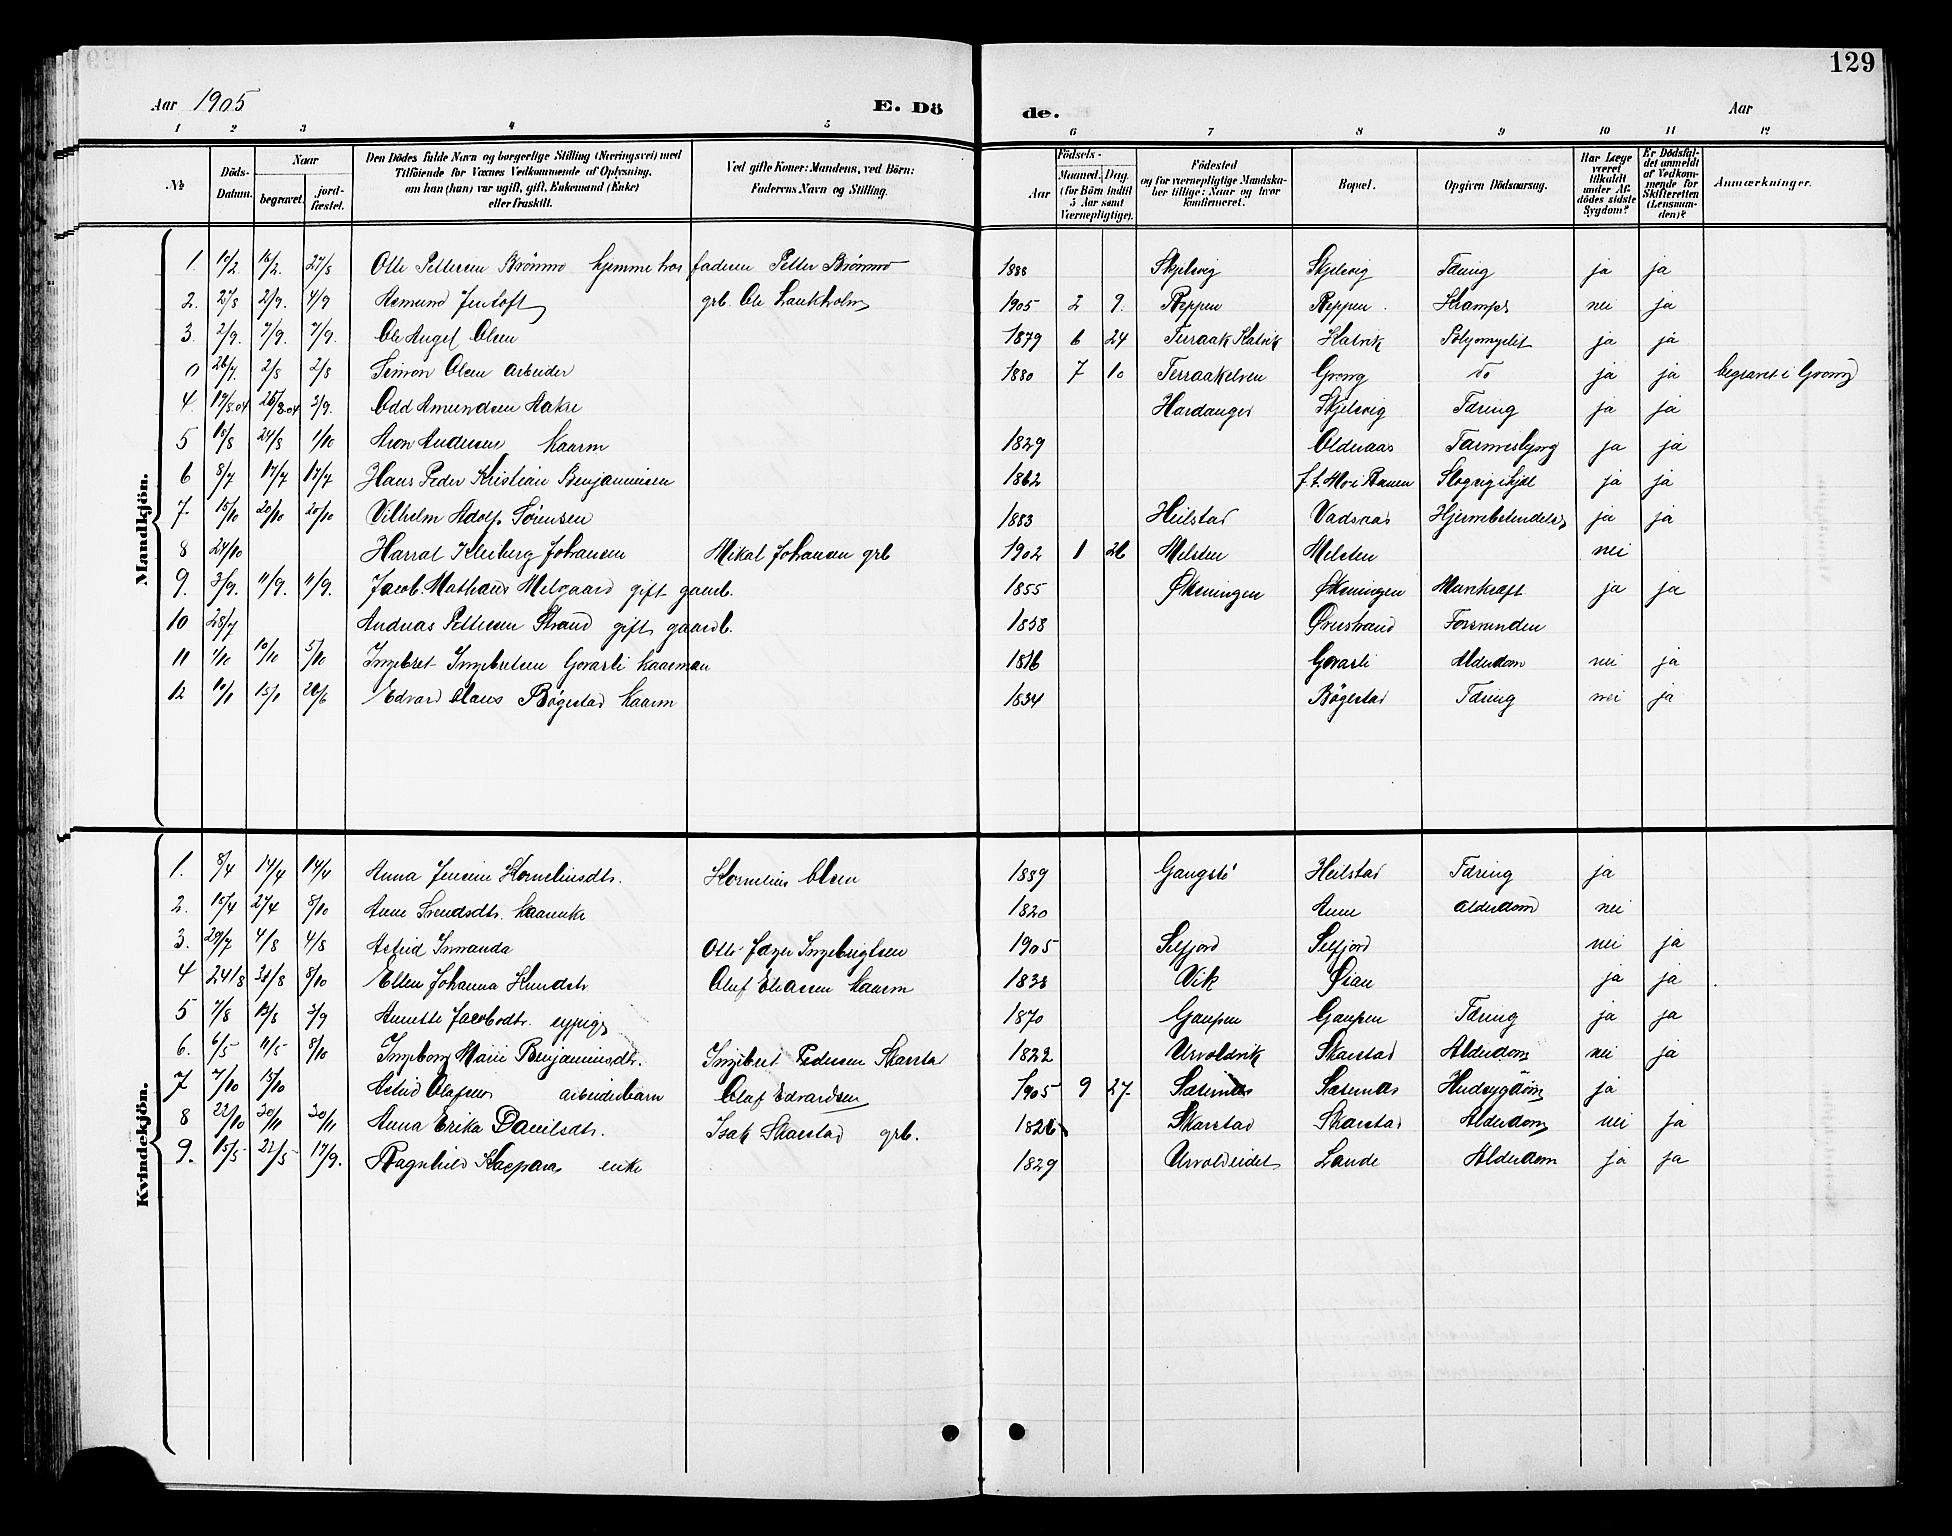 129
Aar 1905 E. Dö de. Aar
1 2 3 4 5 6 7 8 9 10 11 12
№
Döds-Datum.
Naar begravet. jordfæstet.
Den Dödes fulde Navn og borgerlige Stilling (Næringsvei) med Tilföiende for Voxnes Vedkommende af Oplysning, om han (hun) var ugift, gift, Enkemand (Enke) eller fraskilt.
Ved gifte Koner: Mandens, ved Börn: Faderens Navn og Stilling.
Födsels- Aar Maaned. Dag. (for Börn indtil 5 Aar samt Værnepligtige).
Födested og for værnepligtige Mandskaber tillige: Naar og hvor konfirmeret.
Bopæl.
Opgiven Dödsaarsag.
Har Læge været tilkaldt under Afdödes sidste Sygdom?
Er Dödsfaldet anmeldt af Vedkommende for Skifteretten (Lensmanden)?
Anmærkninger.
Mandkjön.
1. 10/2 16/2. 27/8 Otto Pettersen Brönmo hjemme hos faderen Petter Brönmo 1888 Skjelvig Skjelvig Tæring ja ja
2. 27/8 2/9. 4/9 Asmund Jentoft grb. Ole Laukholm 1905 2 9. Reppen Reppen Krampe nei ja
3. 2/9. 7/9. 7/9. Ole Angel Olsen 1879 6 24 Terraak Hatvik Hatvik ja ja
0 26/7. 2/8 2/8 Simon Olsen Arbeider 1880 7 10 Terraakelven Grong do ja ja begravet i Grong
4. 19/8.04 25/8.04 3/9. Odd Amundsen Aakre Hardanger Skjelvig Tæring ja ja
5 18/8 24/8 1/10 Aron Andersen kaarm 1829 Olderaas Tarmeslyng ja ja
6 8/7 17/7 17/7 Hans Peder Kristian Benjaminsen 1862 f.t. Mo i Ranen ja ja
7. 15/10 20/10 20/10 Vilhelm Adolf Sörensen 1883 Heilstad Vadsaas Hjernebetendelse ja ja
8 24/10 Harrat Kleiberg Johansen Mikal Johansen grb 1902 1 26 Melsten Melsten nei
9. 3/9. 11/9. 11/9. Jacob. Mathæus Melgaard gift gaardb. 1855 Øksningen Øksningen ja ja
10 28/7 Andreas Pettersen Strand gift gaardb. 1858 Ørestrand Forsvunden
11 1/10 10/10 5/10 Ingebret Ingebretsen Gvarsli kaarman 1816 Gvarsli Alderdom nei ja
12 10/1 15/1 26/6 Edvard Claus Bögestad kaarm 1834 Bögestad Tæring nei ja
Kvindekjön.
1. 8/4 14/4 14/4 Anna Jensine Korneliusdtr. Kornelius Olsen 1889 Gangstö Heilstad Tæring ja
2. 15/4 27/4 8/10 Anne Svendsdtr. kaarenke 1820 Aune Alderdom nei
3. 29/7 4/8 4/8 Astrid Irmanda Otto Jæger Ingebrigtsen 1905 Selfjord Selfjord nei ja
4 24/8 31/8 8/10 Ellen Johanna Oluf Eliassen kaarm 1838 Vik Øian ja ja
5 7/8 12/8 3/9 Annette Jacobsdtr. 1870 Gaupen Gaupen Tæring ja ja
6. 6/5 11/5 8/10 Ingeborg Marie Benjaminsdtr. Ingebret Pedersen Skarstad 1822 Urvoldvik Skarstad Alderdom nei ja
7 7/10 15/10 Astrid Olafsen arbeiderbarn Olaf Edvardsen 1905 9 27. Saternæs Saternæs Hudsygdom ja
8 22/10 30/11 30/11 Anna Erika Danielsdtr. Isak Skarstad grb. 1826 Skarstad Skarstad Alderdom nei ja
9. 15/5 22/5 17/9. Ragnhild Kaspara enke 1829 Urvoldeidet Lande Alderdom ja ja